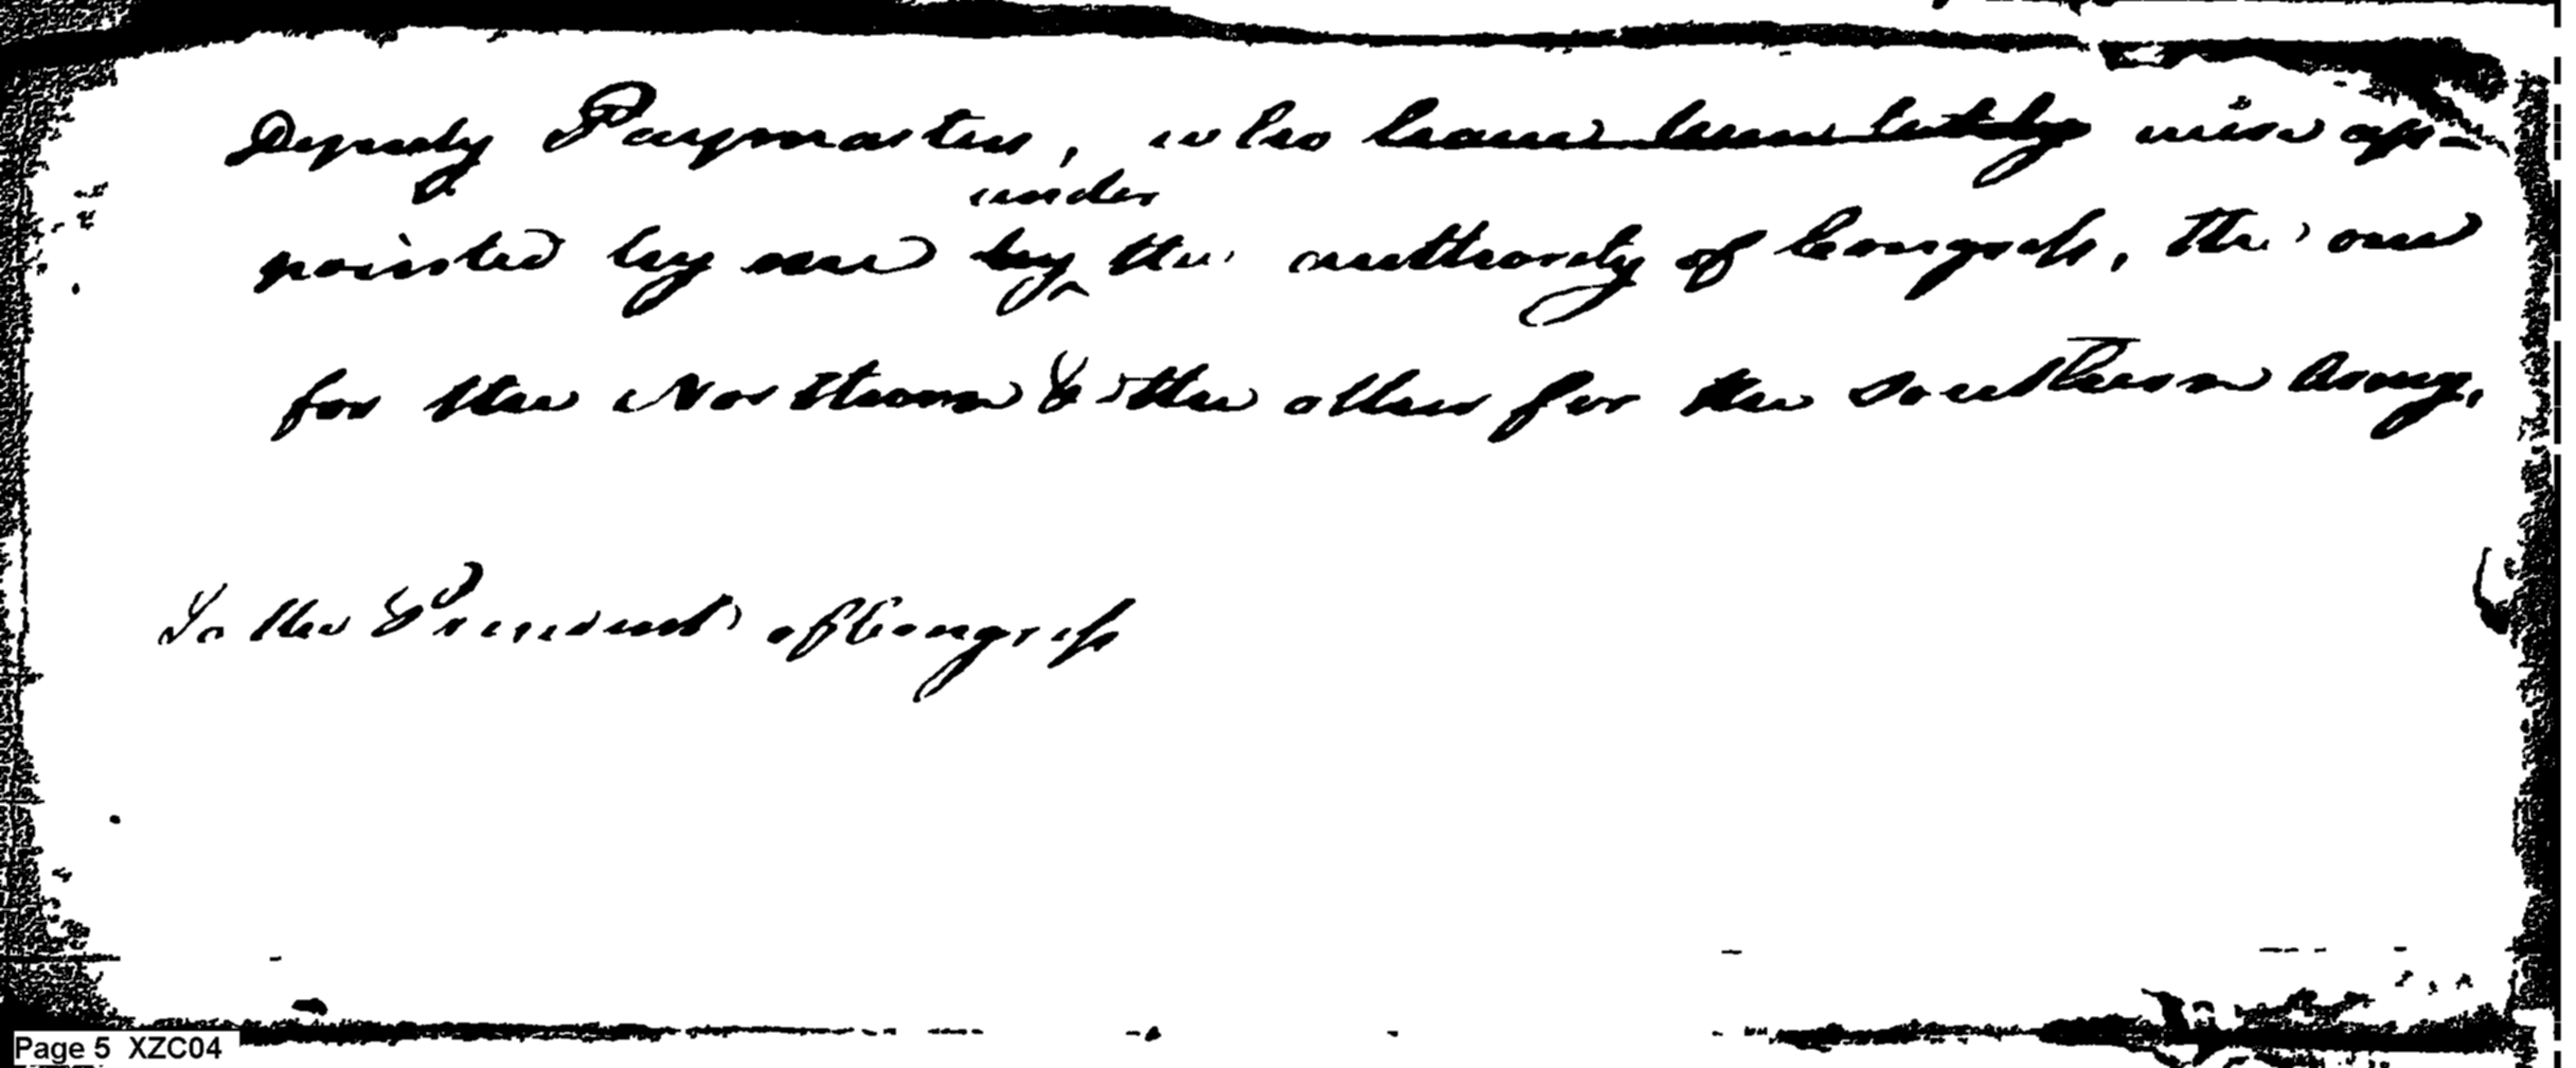 Deputy Paymasters, who have been lately were ap-
under
pointed by me by the authority of Congress, the one
for the Northern & the other for the Southern Army.
To the President of Congress
Page 5 XZC04